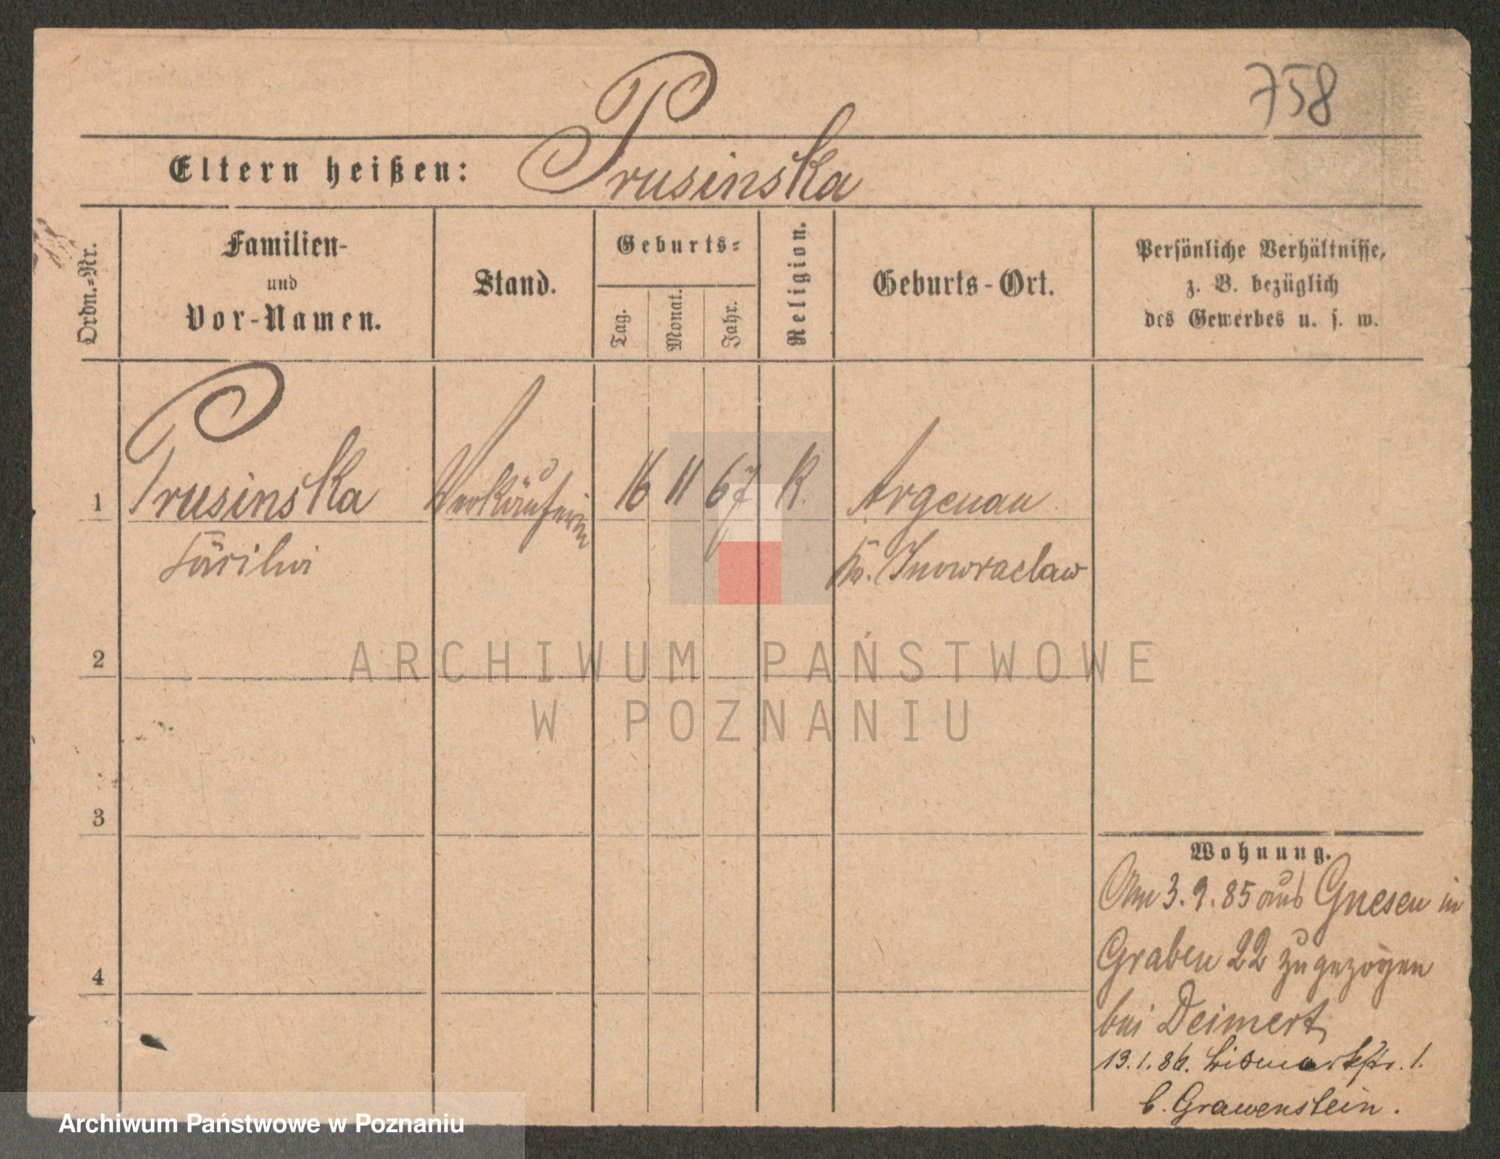 758
Eltern heißen: Prusinska
Ordn.-Nr.
Familien-
und
Vor-Namen.
Stand.
Geburts-
Tag.
Monat.
Jahr.
Religion.
Geburts-Ort.
Persönliche Verhältnisse,
z. B. bezüglich
des Gewerbes u. s. w.
1 Prusinska Verkäuferin 16 11 67 K. Argenau
Kr. Inowraclaw
2
3
4
Wohnung.
Am 3. 9. 85 aus Gnesen in
Graben 22 zugezogen
bei Deimert
13.1.86. Bismarckstr. 1.
b. Grawenstein.
ARCHIWUM PAŃSTWOWE
W POZNANIU
Archiwum Państwowe w Poznaniu